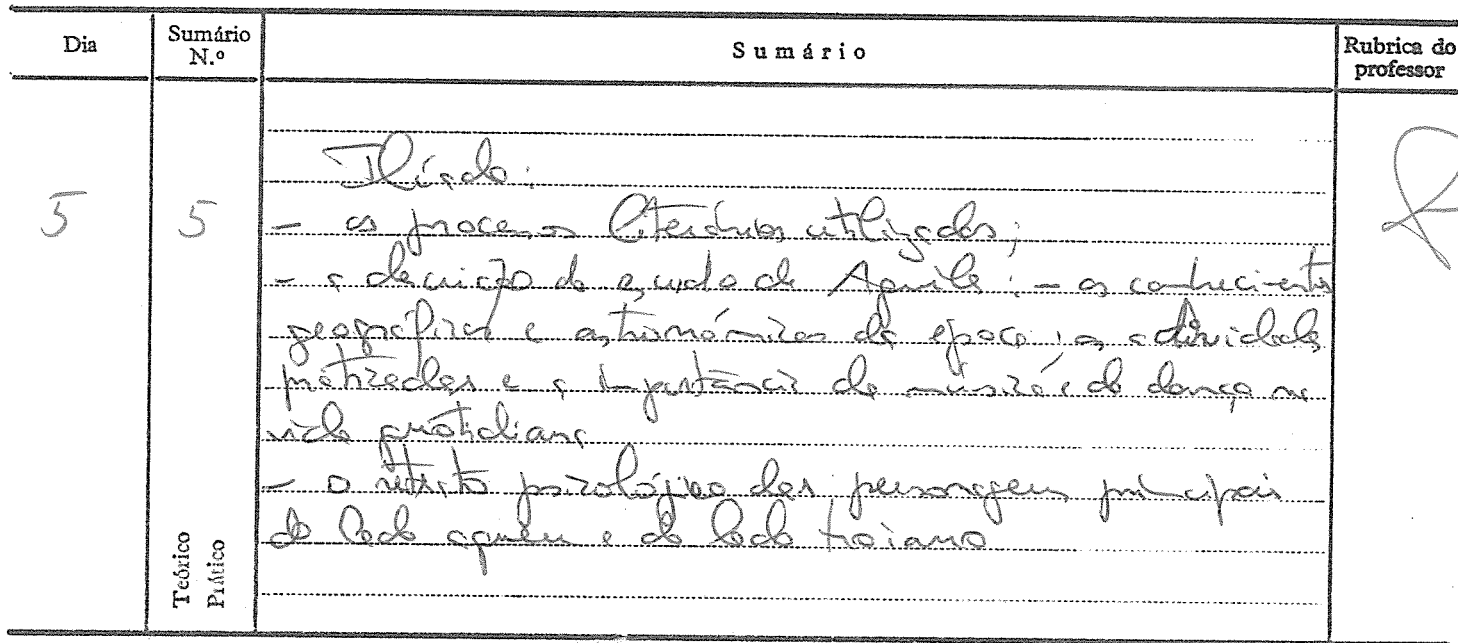 Dia
Sumário N.º
Sumário
Rubrica do professor
Ilíada:
5
5
- os processos literários utilizados;
- a descrição do escudo de Aquiles: - os conhecimentos
geográficos e astronómicos da época; as actividades
praticadas e a importância da música e da dança na
vida quotidiana
- o retrato psicológico das personagens principais
do lado aqueu e do lado troiano
Teórico
Prático